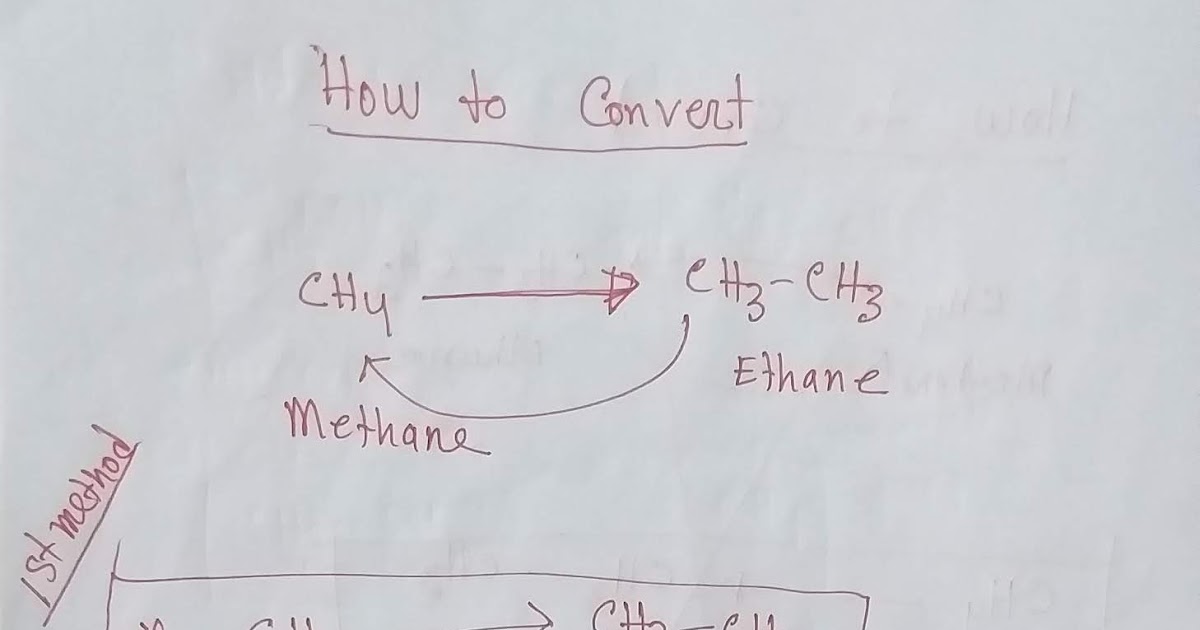 How to Convert
CH4 → CH3-CH3
Methane
Ethane
1St method